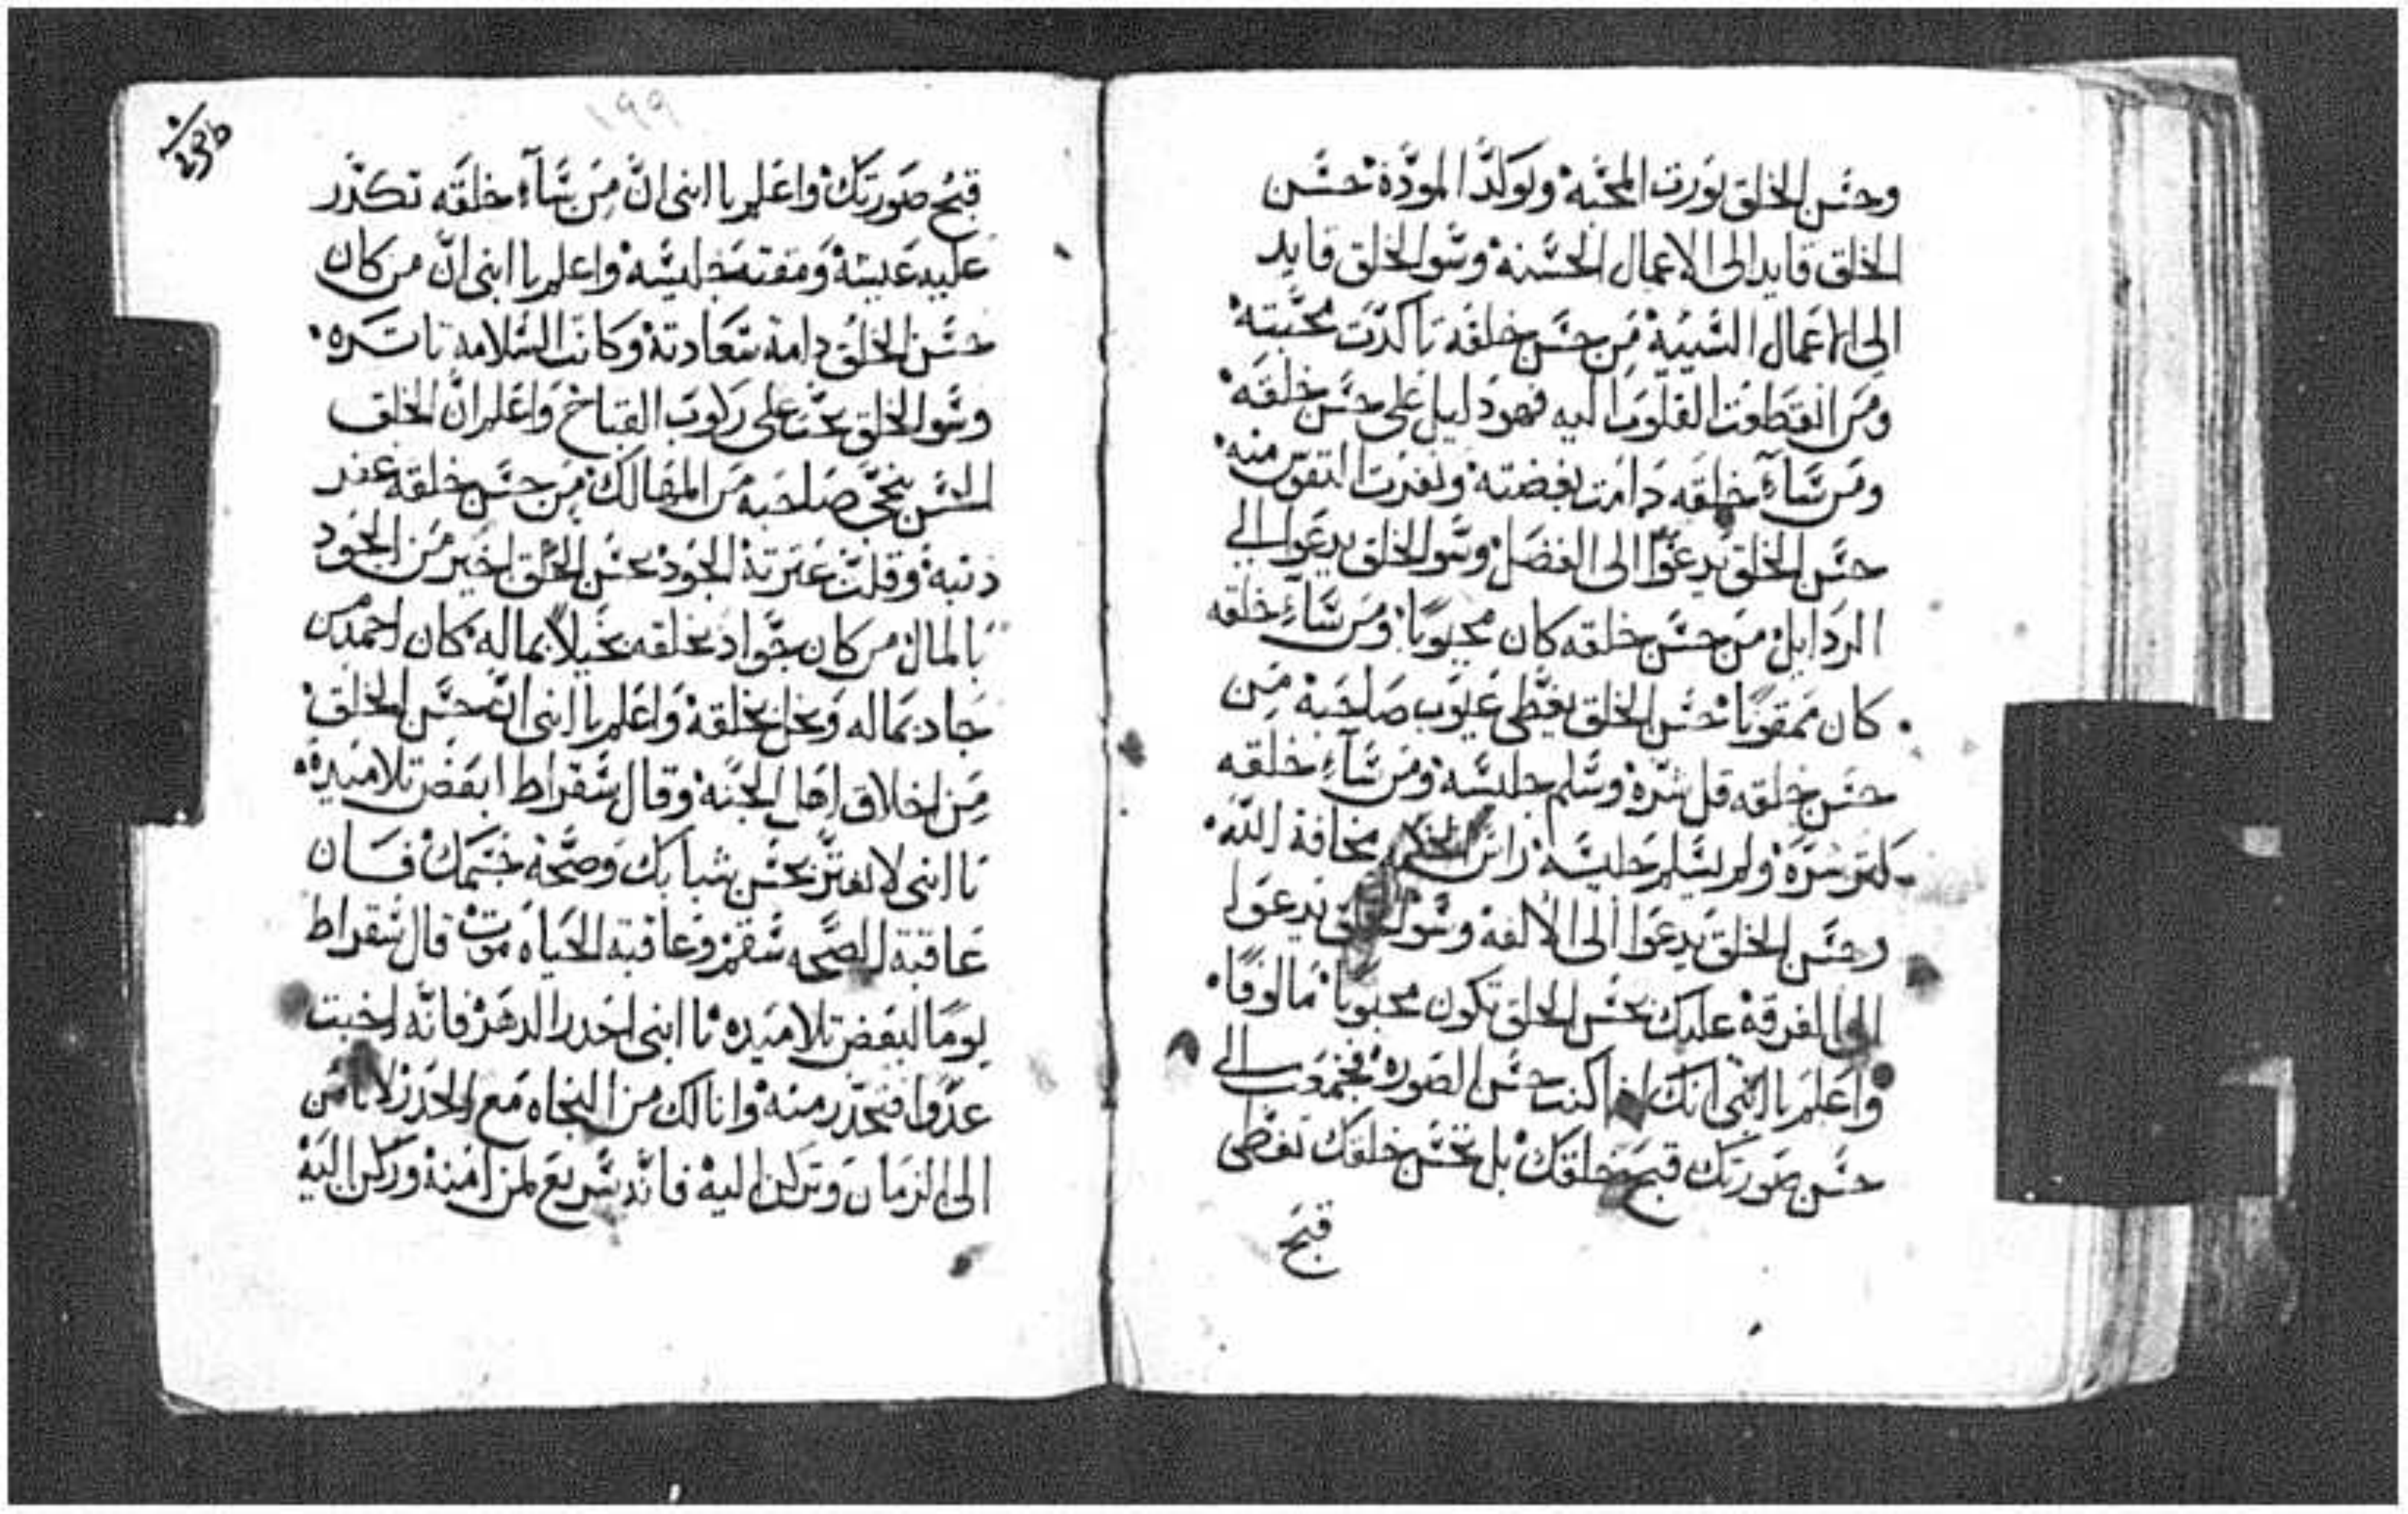 وحسن الخلق يورت المحبه ويوكد المودة حسن
الخلق قايد الى الاعمال الحسنه وسو الخلق قايد
الى الاعمال السيية من حسن خلقه تاكدت محبته
ومن انقطعت القلوب اليه فهو دليل على حسن خلقه
ومن سآء خلقه دامت بغضته ونفرت النفوس منه
حسن الخلق يدعوا الى الفضل وسو الخلق يدعوا الي
الردايل من حسن خلقه كان محبوبا ومن سآء خلقه
كان ممقوتا حسن الخلق يغطى عيوب صاحبة من
حسن خلقه قل شره وسلم جليسه ومن سآء خلقه
كثر شره ولم يسلم جليسه راس مخافة الله
وحسن الخلق يدعوا الى الالفه وسو الخلق يدعوا
الى الفرقة عليك بحسن الخلق تكون محبوبا مالوفا
واعلم يا ابنى انك اذا كنت حسن الصوره
حسن صورتك قبح خلقك بل بحسن خلقك تغطى
قبح
١٩٩
236
قبح صورتك واعلم يا ابنى ان من سآء خلقه تكدر
عليه عيشة ومقته جليسه واعلم يا ابنى ان من كان
حسن الخلق دامة سعادتة وكانت السلامه تاسره
وسو الخلق يحث على ركوب القبايح واعلم ان الخلق
الحسن ينجى صاحبه من المهالك من حسن خلقه غفر
ذنبه وقلت عثرتة الجود بحسن الخلق اخير من الجود
بالمال من كان جواد بخلقه بخيلا بماله كان احمد من
جاد بماله وبخل بخلقه واعلم يا ابنى ان حسن الخلق
من اخلاق اهل الجنه وقال سقراط لبعض تلاميده
يا ابنى لا تغتر بحسن شبابك وصحة جسمك فان
عاقبة الصحه سقم وعاقبه الحياه موت قال سقراط
يوما لبعض تلاميده يا ابنى احدر الدهر فانه اخبت
عدوا فتحذر منه وانا لك من النجاه مع الحدر لا تامن
الى الزمان وتركن اليه فانه سريع لمن امنه وركن اليه